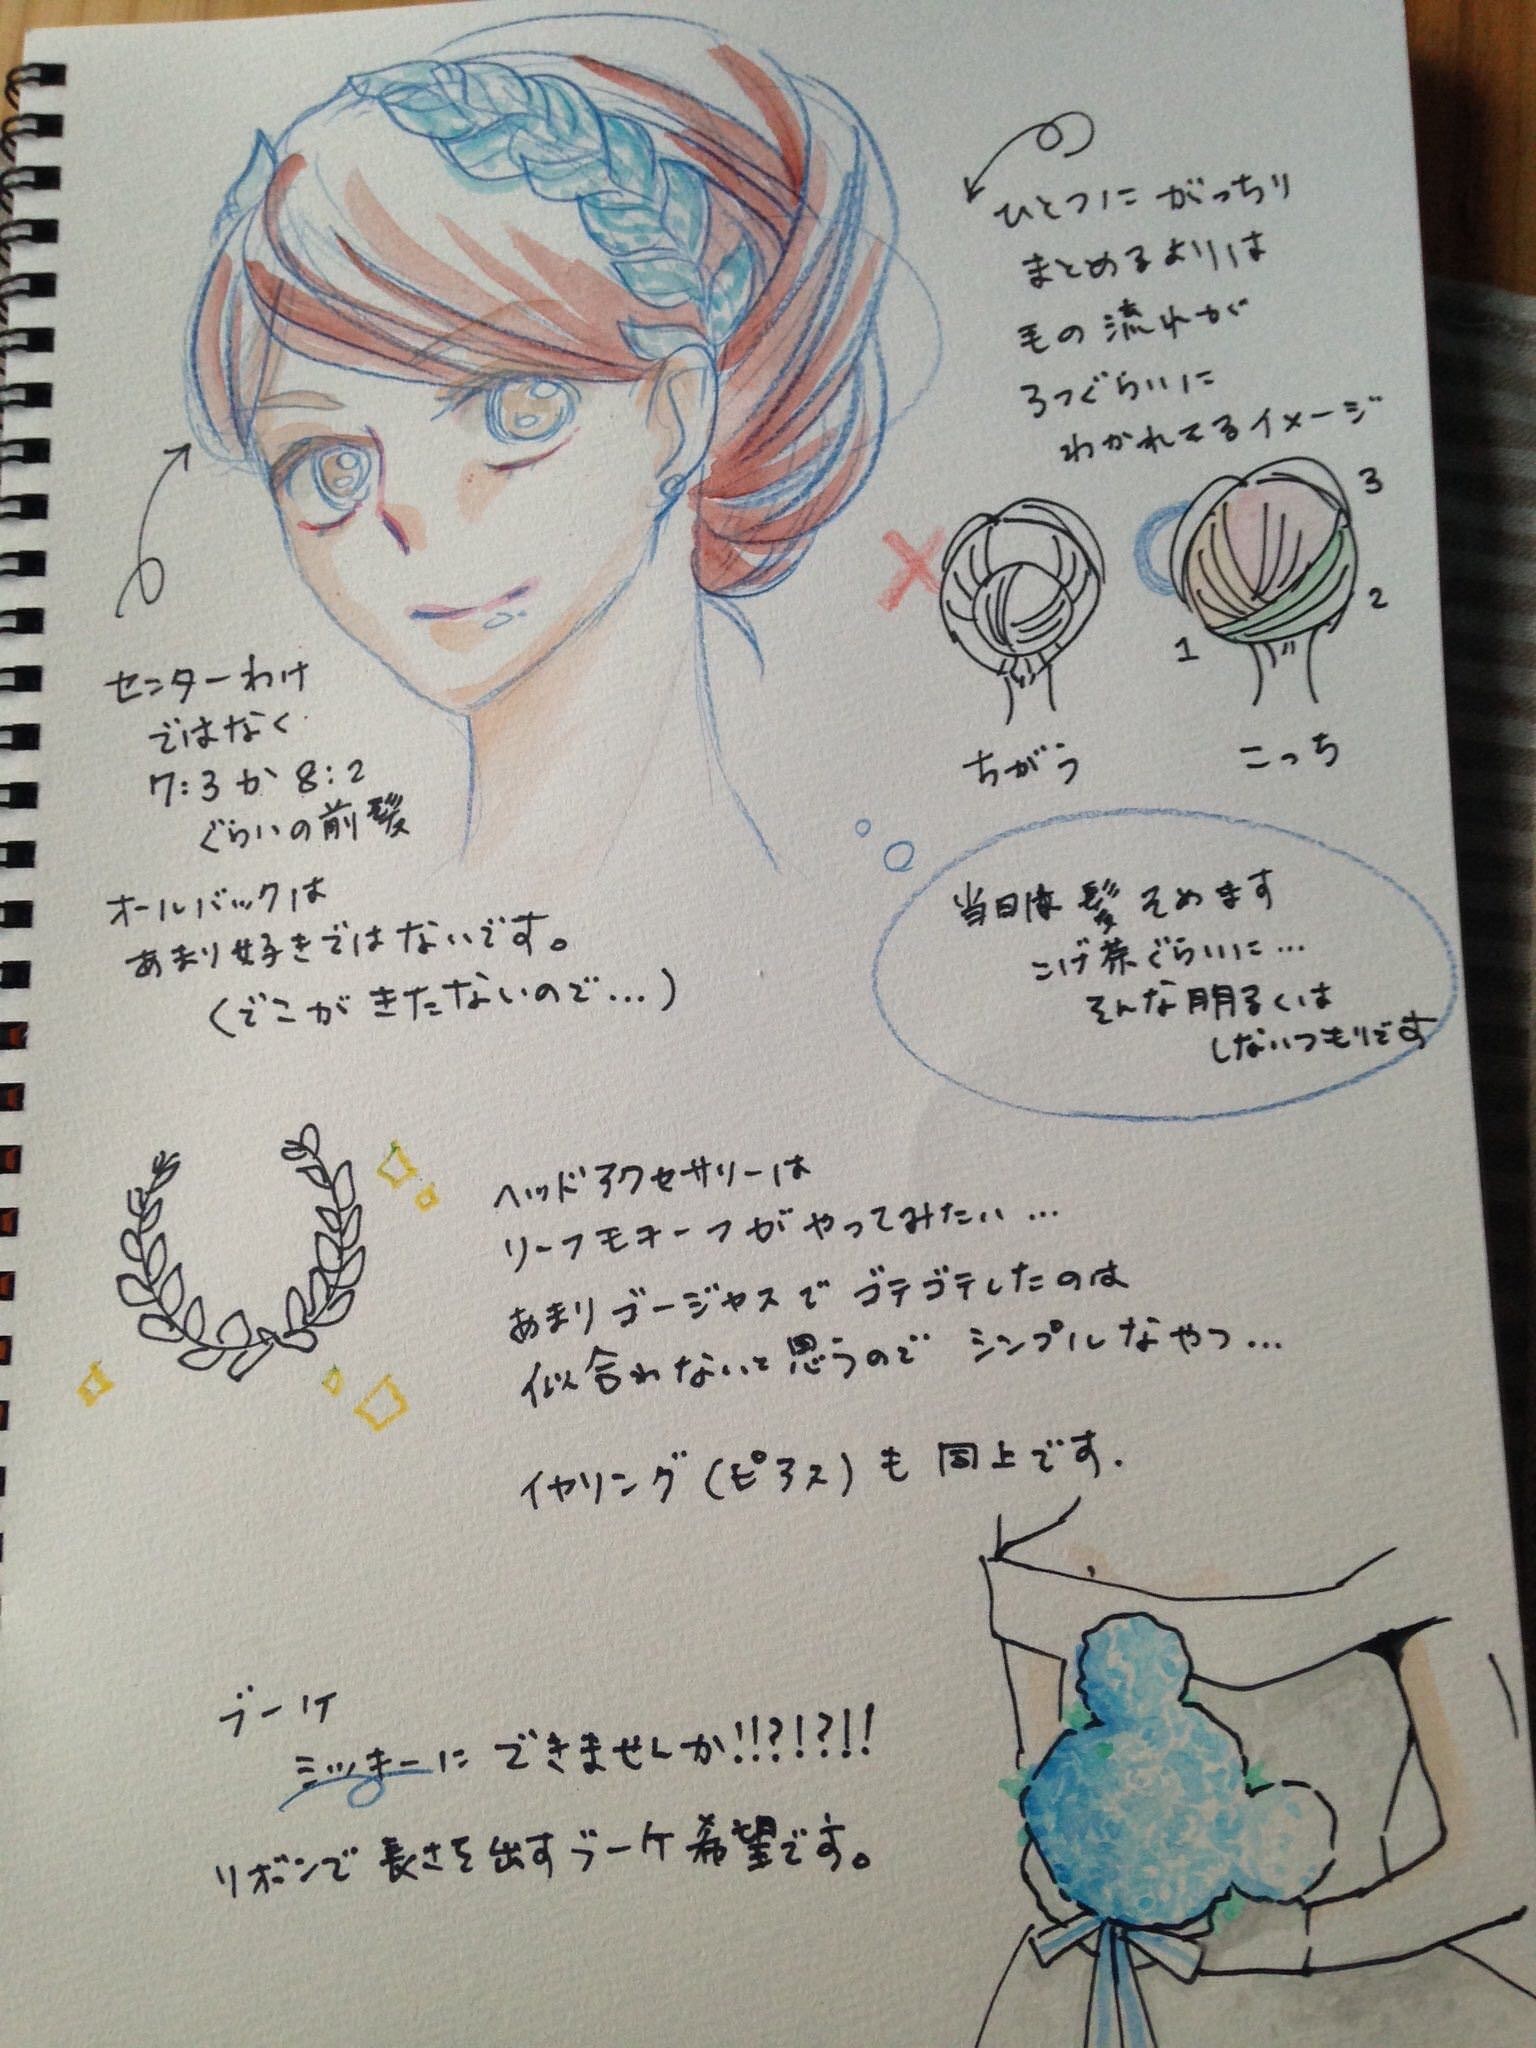 ひとつに がっちり
まとめるよりは
毛の流れが
3つぐらいに
わかれてるイメージ
3
2
1
ちがう
こっち
センターわけ
ではなく
7:3か8:2
ぐらいの前髪
オールバックは
あまり好きではないです。
(でこがきたないので…)
当日は髪そめます
こげ茶ぐらいに…
そんな明るくは
しないつもりです
ヘッドアクセサリーは
リーフモチーフがやってみたい…
あまりゴージャスでゴテゴテしたのは
似合わないと思うので シンプルなやつ…
イヤリング(ピアス)も同上です.
ブーケ
ミッキーにできませんか!!?!?!!
リボンで長さを出すブーケ希望です。